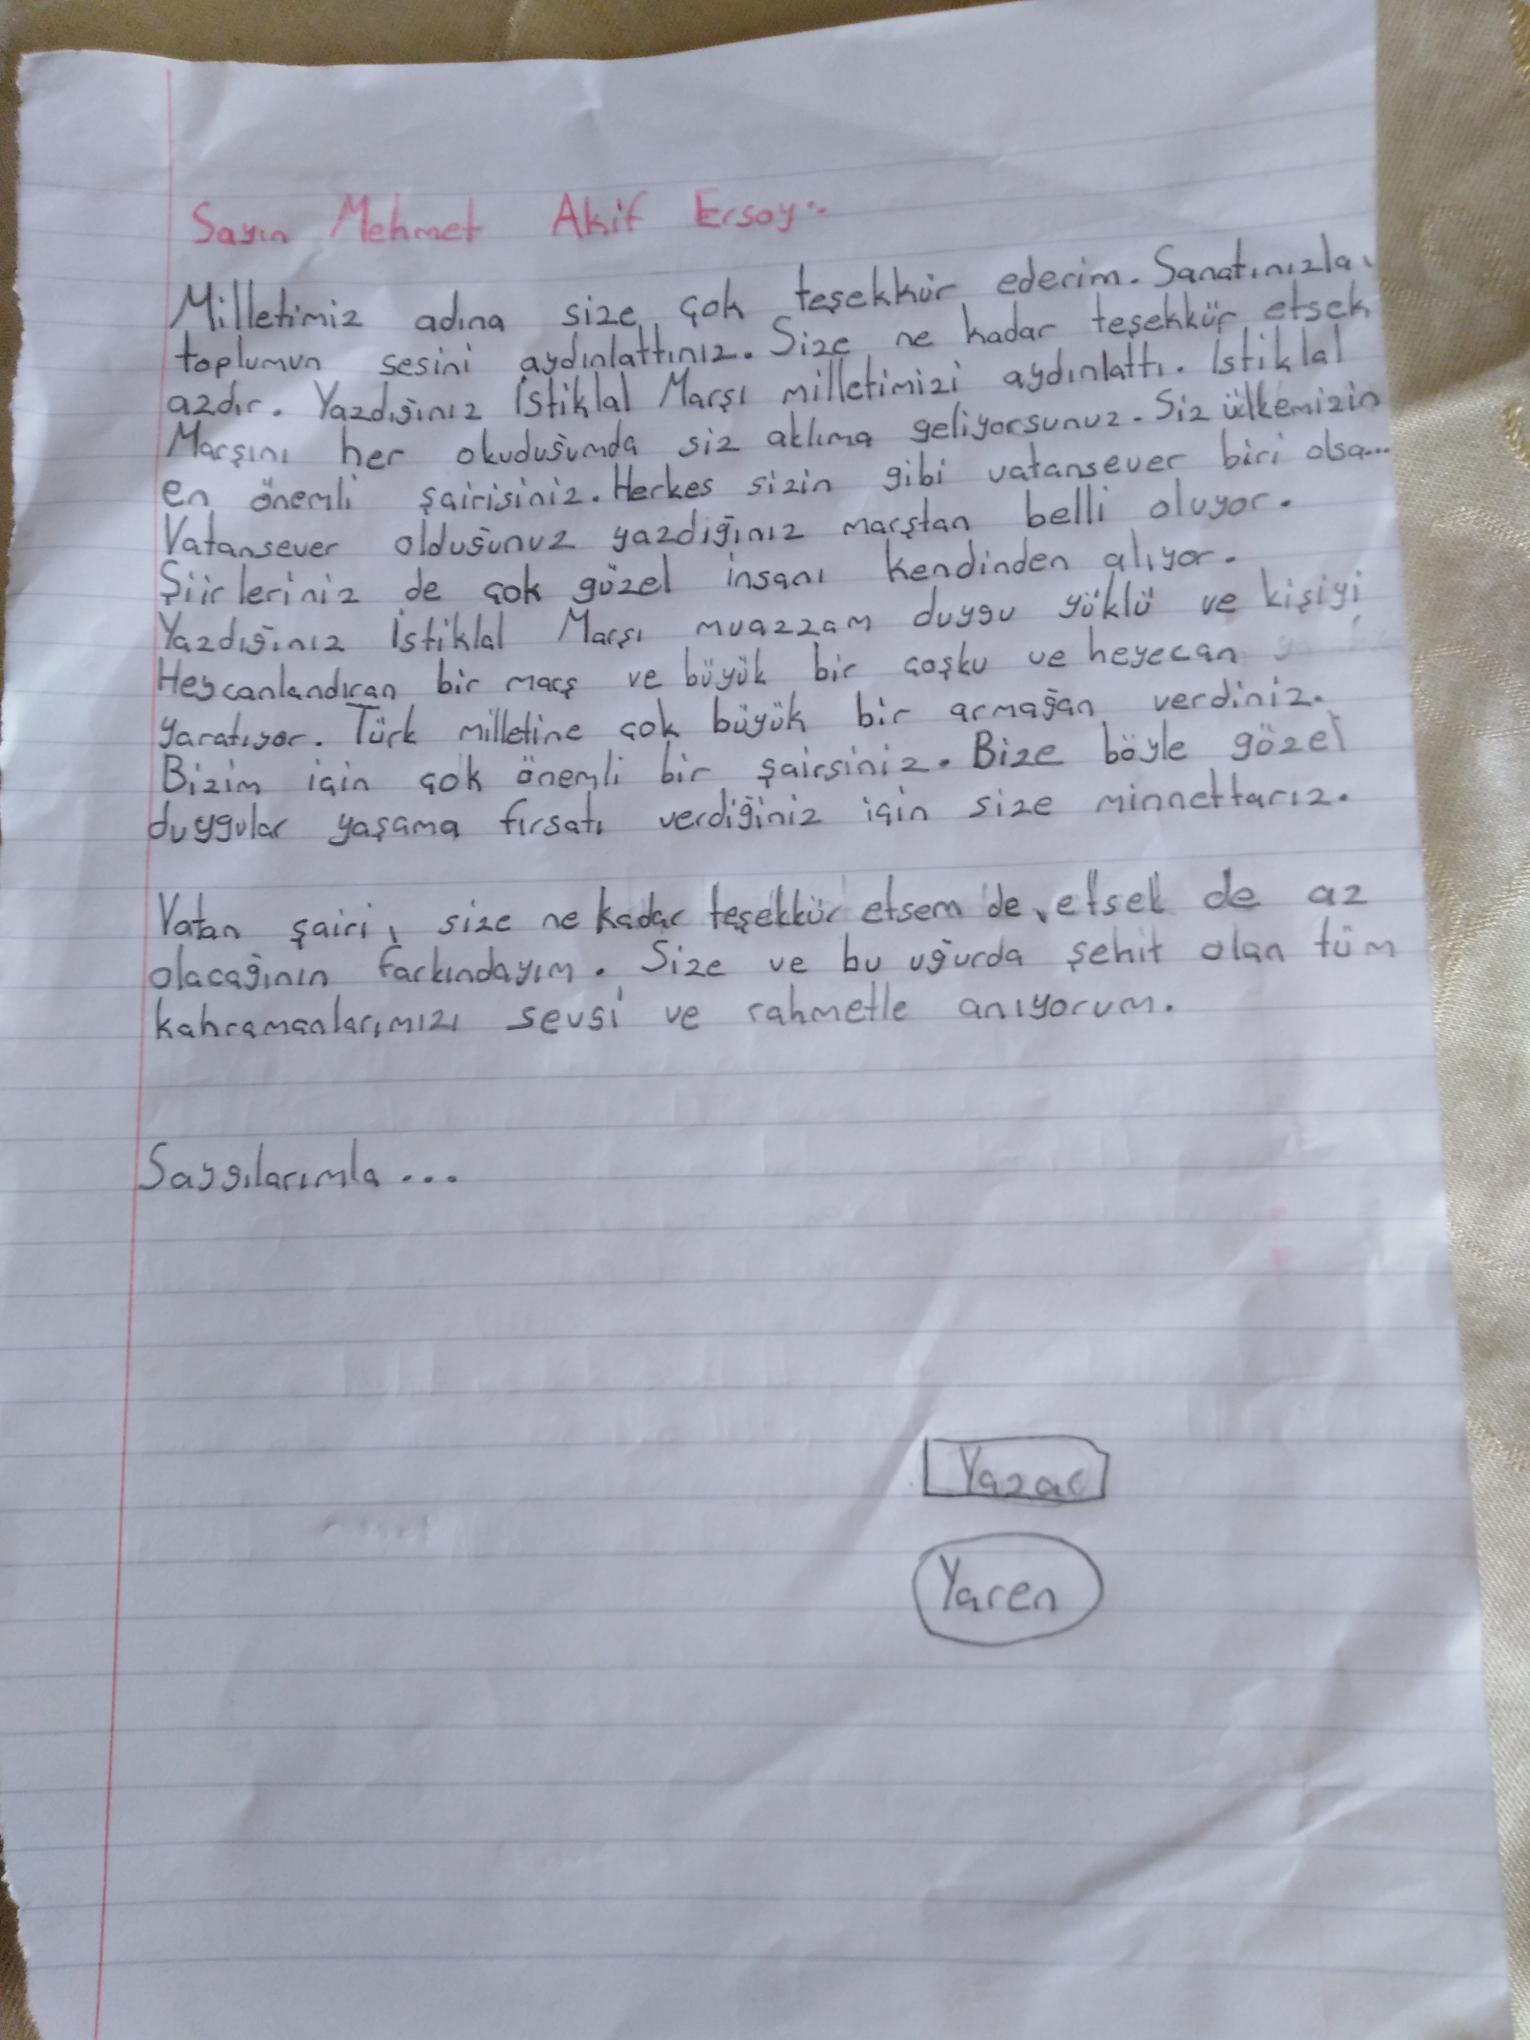 Sayın Mehmet Akif Ersoy:-
Milletimiz adına size çok teşekkür ederim. Sanatınızla,
toplumun sesini aydınlattınız. Size ne kadar teşekkür etsek
azdır. Yazdığınız İstiklal Marşı milletimizi aydınlattı. İstiklal
Marşını her okuduğumda siz aklıma geliyorsunuz. Siz ülkemizin
en önemli şairisiniz. Herkes sizin gibi vatansever biri olsa...
Vatansever olduğunuz yazdiğiniz marştan belli oluyor.
Şiirleriniz de çok güzel insanı kendinden alıyor.
Yazdığınız İstiklal Marşı muazzam duygu yüklü ve kişiyi
Heycanlandıran bir marş ve büyük bir coşku ve heyecan
yaratıyor. Türk milletine çok büyük bir armağan verdiniz.
Bizim için çok önemli bir şairsiniz. Bize böyle gözel
duygular yaşama fırsatı verdiğiniz için size minnettarız.
Vatan şairi, size ne kadar teşekkür etsem de, etsek de az
olacağının farkındayım. Size ve bu uğurda şehit olan tüm
kahramanlarımızı sevgi ve rahmetle anıyorum.
Saygılarımla...
Yazar
Yaren